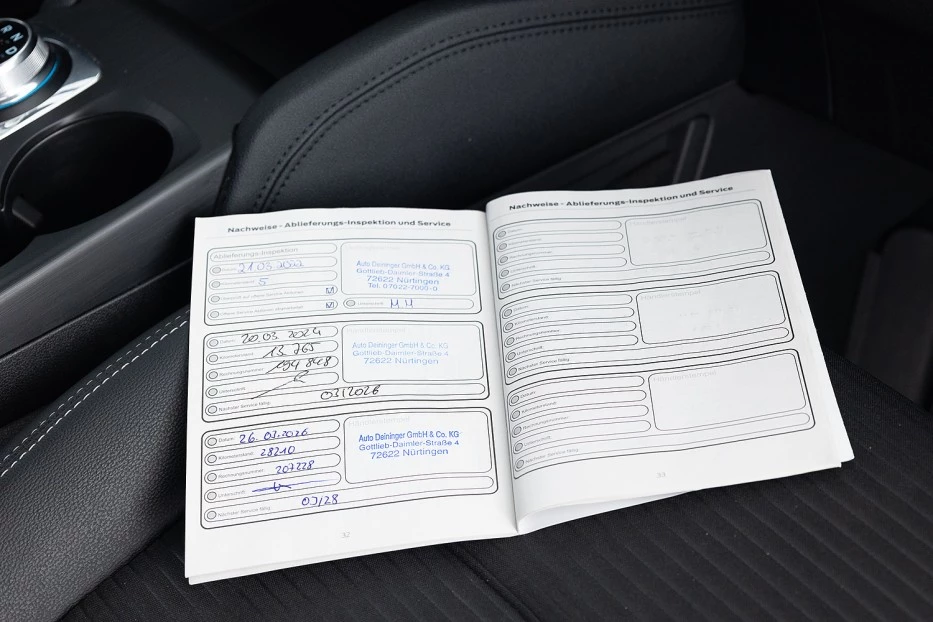 R
N
D
Nachweise - Ablieferungs-Inspektion und Service
Ablieferungs-Inspektion
Datum: 21.03.2022
Kilometerstand: 5
Auto Deininger GmbH & Co. KG
Gottlieb-Daimler-Straße 4
72622 Nürtingen
Unterschrift: MM
Datum: 20 03 2024
Kilometerstand: 13 765
Rechnungsnummer: 194 848
Unterschrift:
Nächster Service fällig: 03/2026
Händlerstempel
Auto Deininger GmbH & Co. KG
Gottlieb-Daimler-Straße 4
72622 Nürtingen
Datum: 26.03.2026
Kilometerstand: 28210
Rechnungsnummer: 207228
Unterschrift:
Nächster Service fällig: 03/28
Händlerstempel
Auto Deininger GmbH & Co. KG
Gottlieb-Daimler-Straße 4
72622 Nürtingen
32
Nachweise - Ablieferungs-Inspektion und Service
Datum:
Kilometerstand:
Rechnungsnummer:
Unterschrift:
Nächster Service fällig:
Händlerstempel
Datum:
Kilometerstand:
Rechnungsnummer:
Unterschrift:
Nächster Service fällig:
Händlerstempel
Datum:
Kilometerstand:
Rechnungsnummer:
Unterschrift:
Nächster Service fällig:
Händlerstempel
33